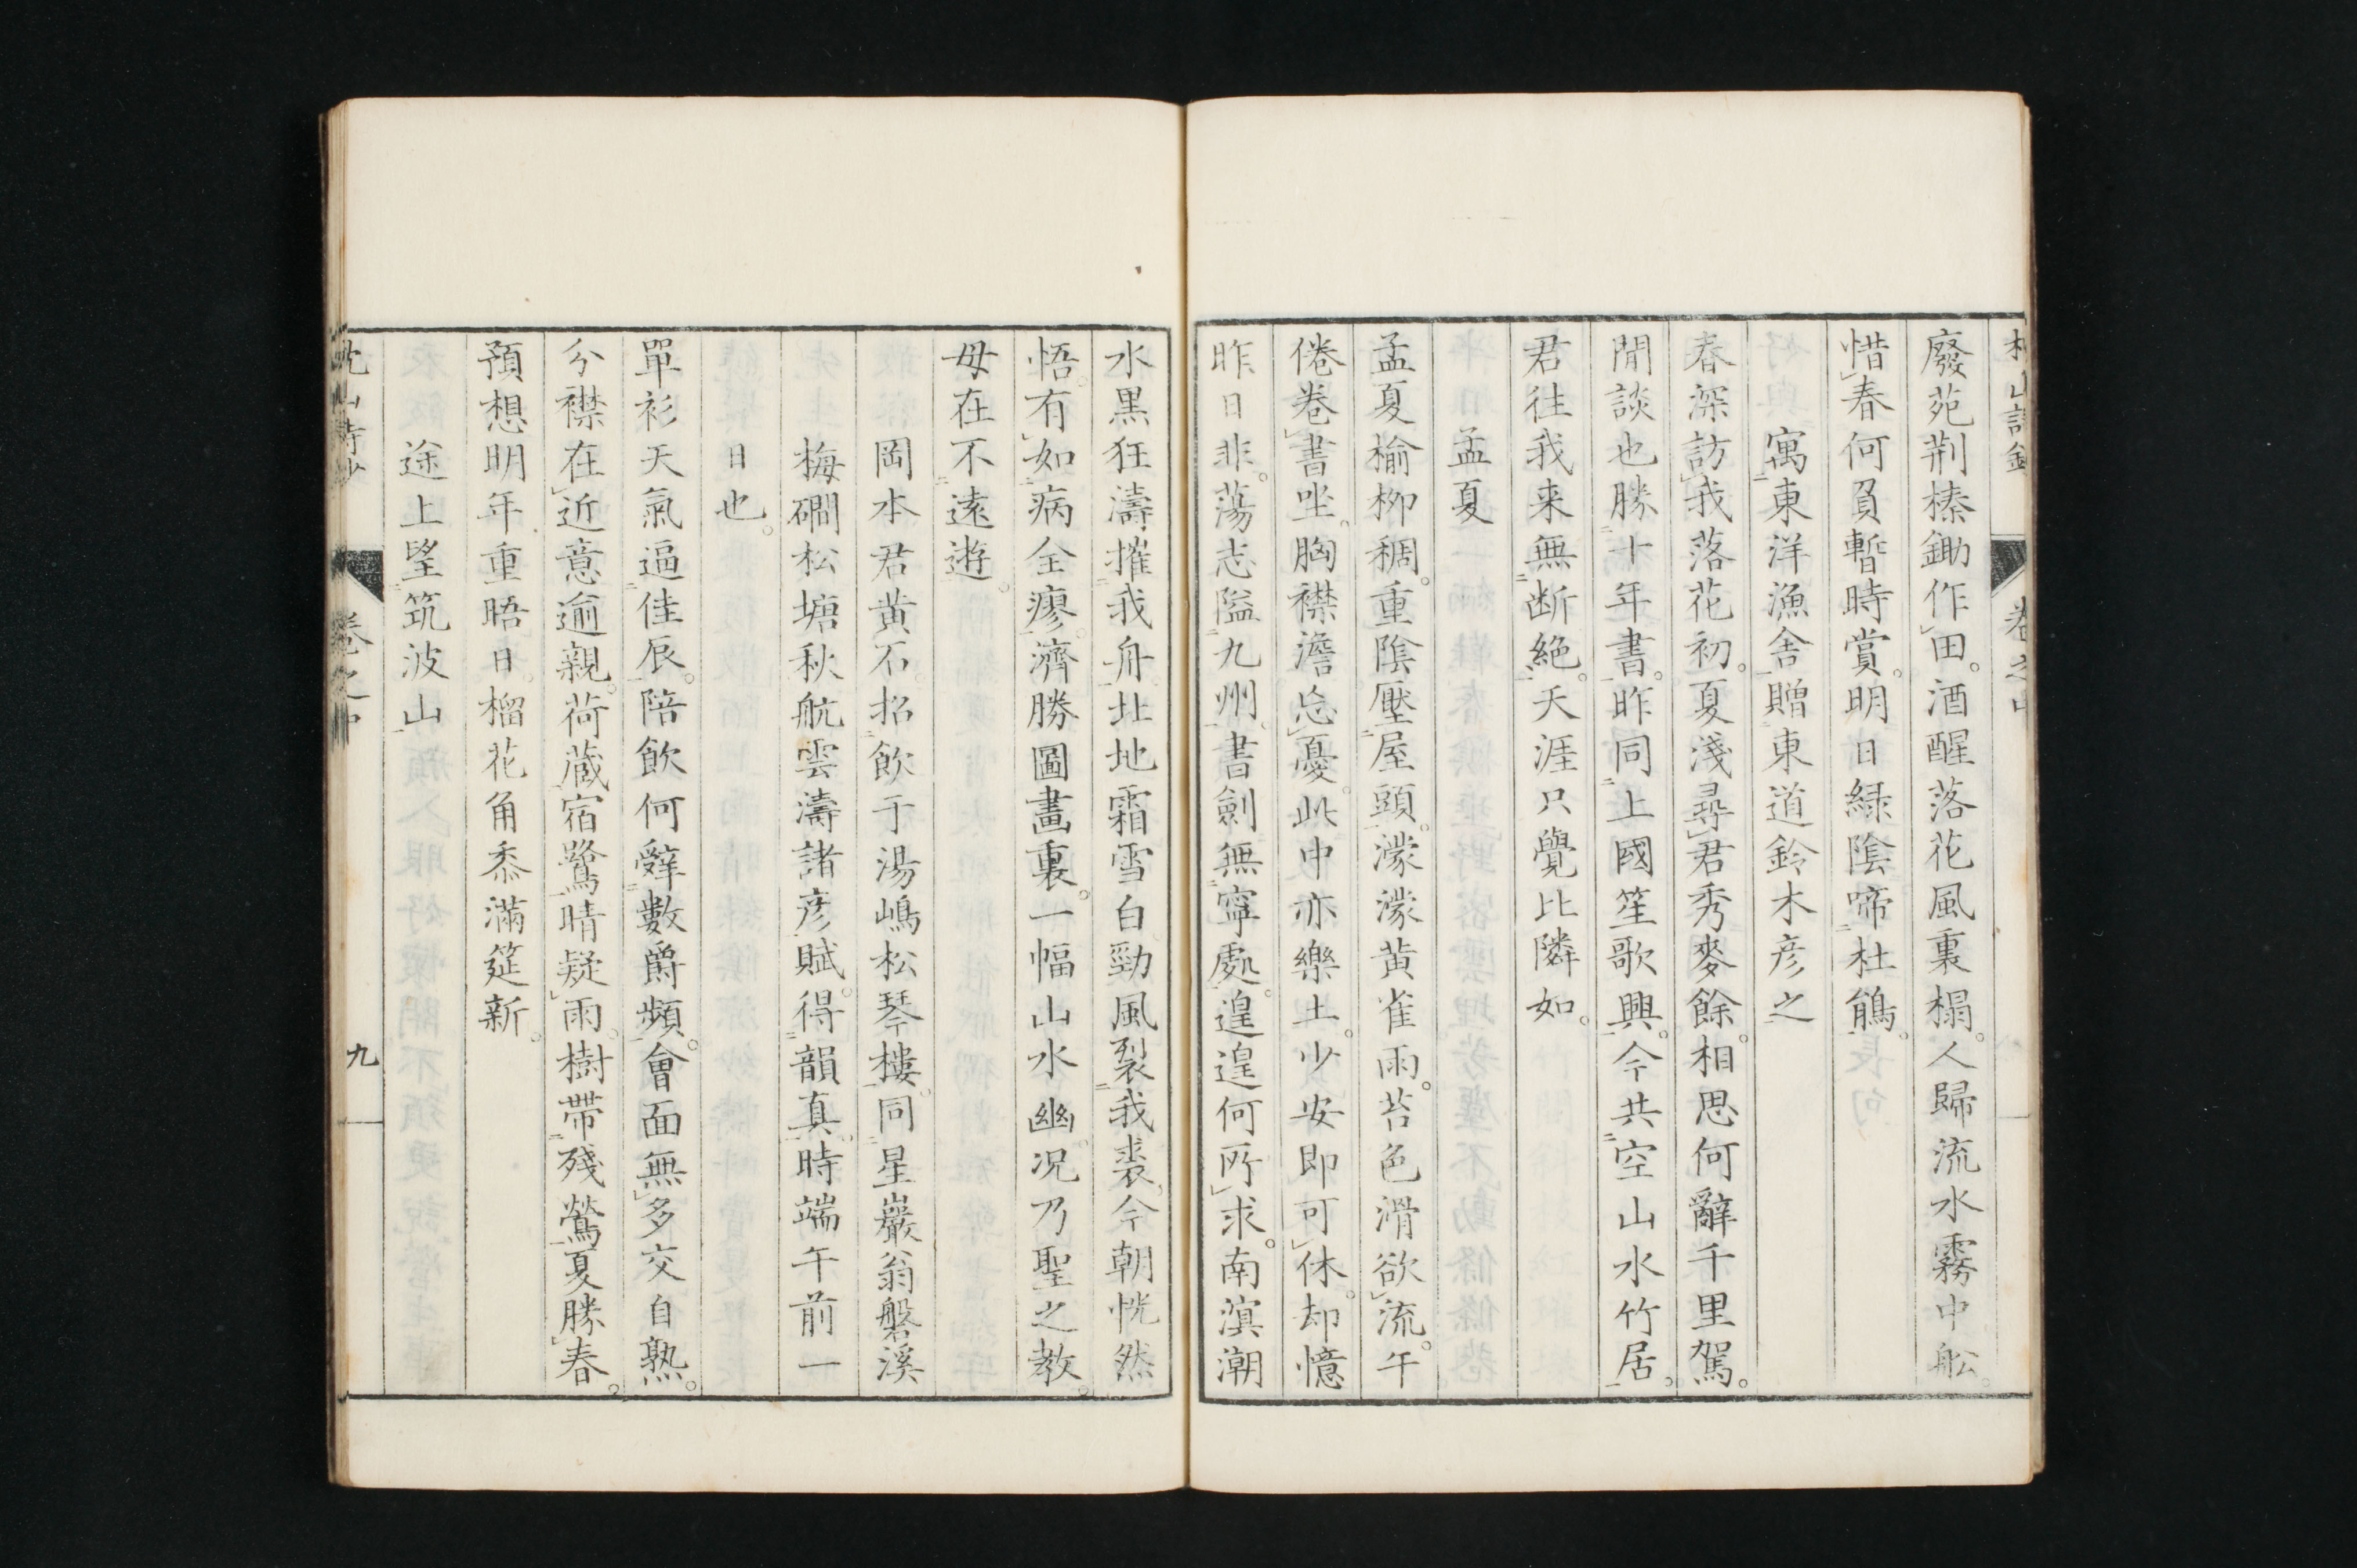 廢苑荆榛鋤作田。酒醒落花風裏榻。人歸流水霧中舩。
惜春何負暫時賞。明日緑陰啼杜鵑。
寓東洋漁舍贈東道鈴木彦之
春深訪我落花初。夏淺尋君秀麥餘。相思何辭千里駕。
閒談也勝十年書。昨同上國笙歌興。今共空山水竹居。
君往我来無断絶。天涯只覺比隣如。
孟夏
孟夏榆柳稠。重陰壓屋頭。濛濛黄雀雨。苔色滑欲流。午
倦卷書坐。胸襟澹忘憂。此中亦樂土。少安即可休。却憶
昨日非。蕩志隘九州。書劍無寧處。遑遑何所求。南溟潮
水黒狂濤摧我舟。北地霜雪白勁風裂我裘。今朝恍然
悟。有如病全瘳。濟勝圖畫裏。一幅山水幽。况乃聖之教。
母在不遠遊。
岡本君黄石招飲于湯嶋松琴樓。同星巖翁磐溪
梅磵松塘秋航雲濤諸彦賦。得韻真。時端午前一
日也。
單衫天氣逼佳辰。陪飲何辭數爵頻。會面無多交自熟。
分襟在近意逾親。荷蔵宿鷺晴疑雨。樹帶殘鶯夏勝春。
預想明年重晤日。榴花角黍滿筵新。
途上望筑波山
枕山詩鈔 卷之中 九